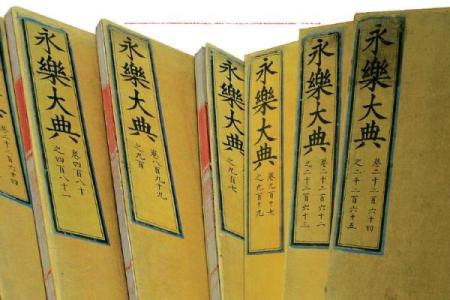 永樂大典
卷二千二百六十四
之二千二百六十五
永樂大典
卷二千二百六十二
之二千二百六十三
永樂大典
卷九百十七
之九百十九
永樂大典
卷九百七
永樂大典
卷八百九十九
之九百
永樂大典
卷四百八十
之四百八十一